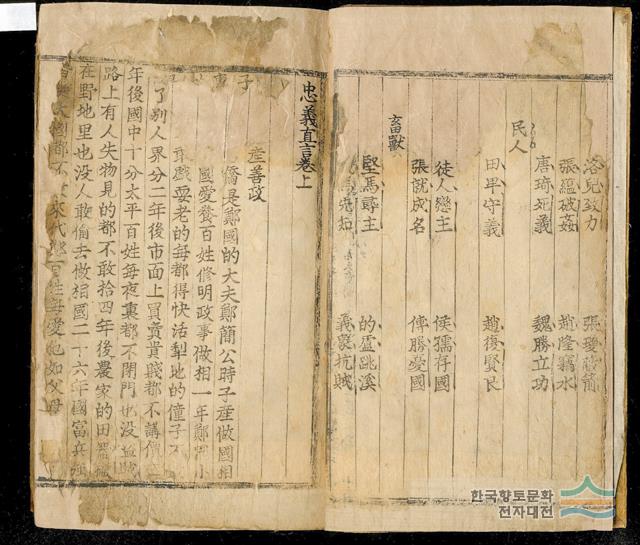 張蘊破姦 趙隆竊水
唐琦死義 魏勝立功
民人
田單守義 趙復賢良
徒人戀主 侯獳存國
張就成名 傅勝憂國
畜獸
堅馬尋主 的盧跳溪
義 抗賊
忠義直言卷上
產善政
僑是鄭國的大夫鄭簡公時子產做國相
國愛養百姓修明政事做相一年鄭國小
戲耍老的每都得快活犁地的僮子不
了別人界分二年後市面上買賣貴賤都不講價三
年後國中十分太平百姓每夜裏都不閉門也没盜賊
路上有人失物見的都不敢拾四年後農家的田器
在野地里也没人敢偷去做相國二十六年國富兵強
都不 來伐鄭百姓每愛他如父母
한국향토문화
전자대전